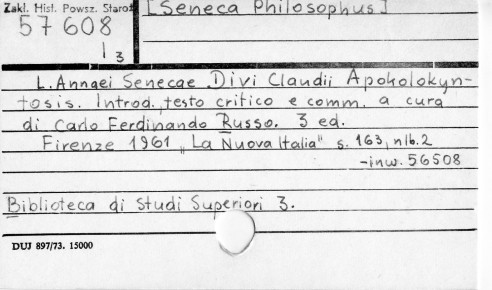 Zakł. Hist. Powsz. Staroż
[Seneca Philosophus]
57608
I
3
L. Annaei Senecae Divi Claudii Apokolokyn-
tosis. Introd., testo critico e comm. a cura
di Carlo Ferdinando Russo. 3 ed.
Firenze 1961 "La Nuova Italia" s. 163, nlb. 2
-inw. 56508
Biblioteca di Studi Superiori 3.
DUJ 897/73. 15000